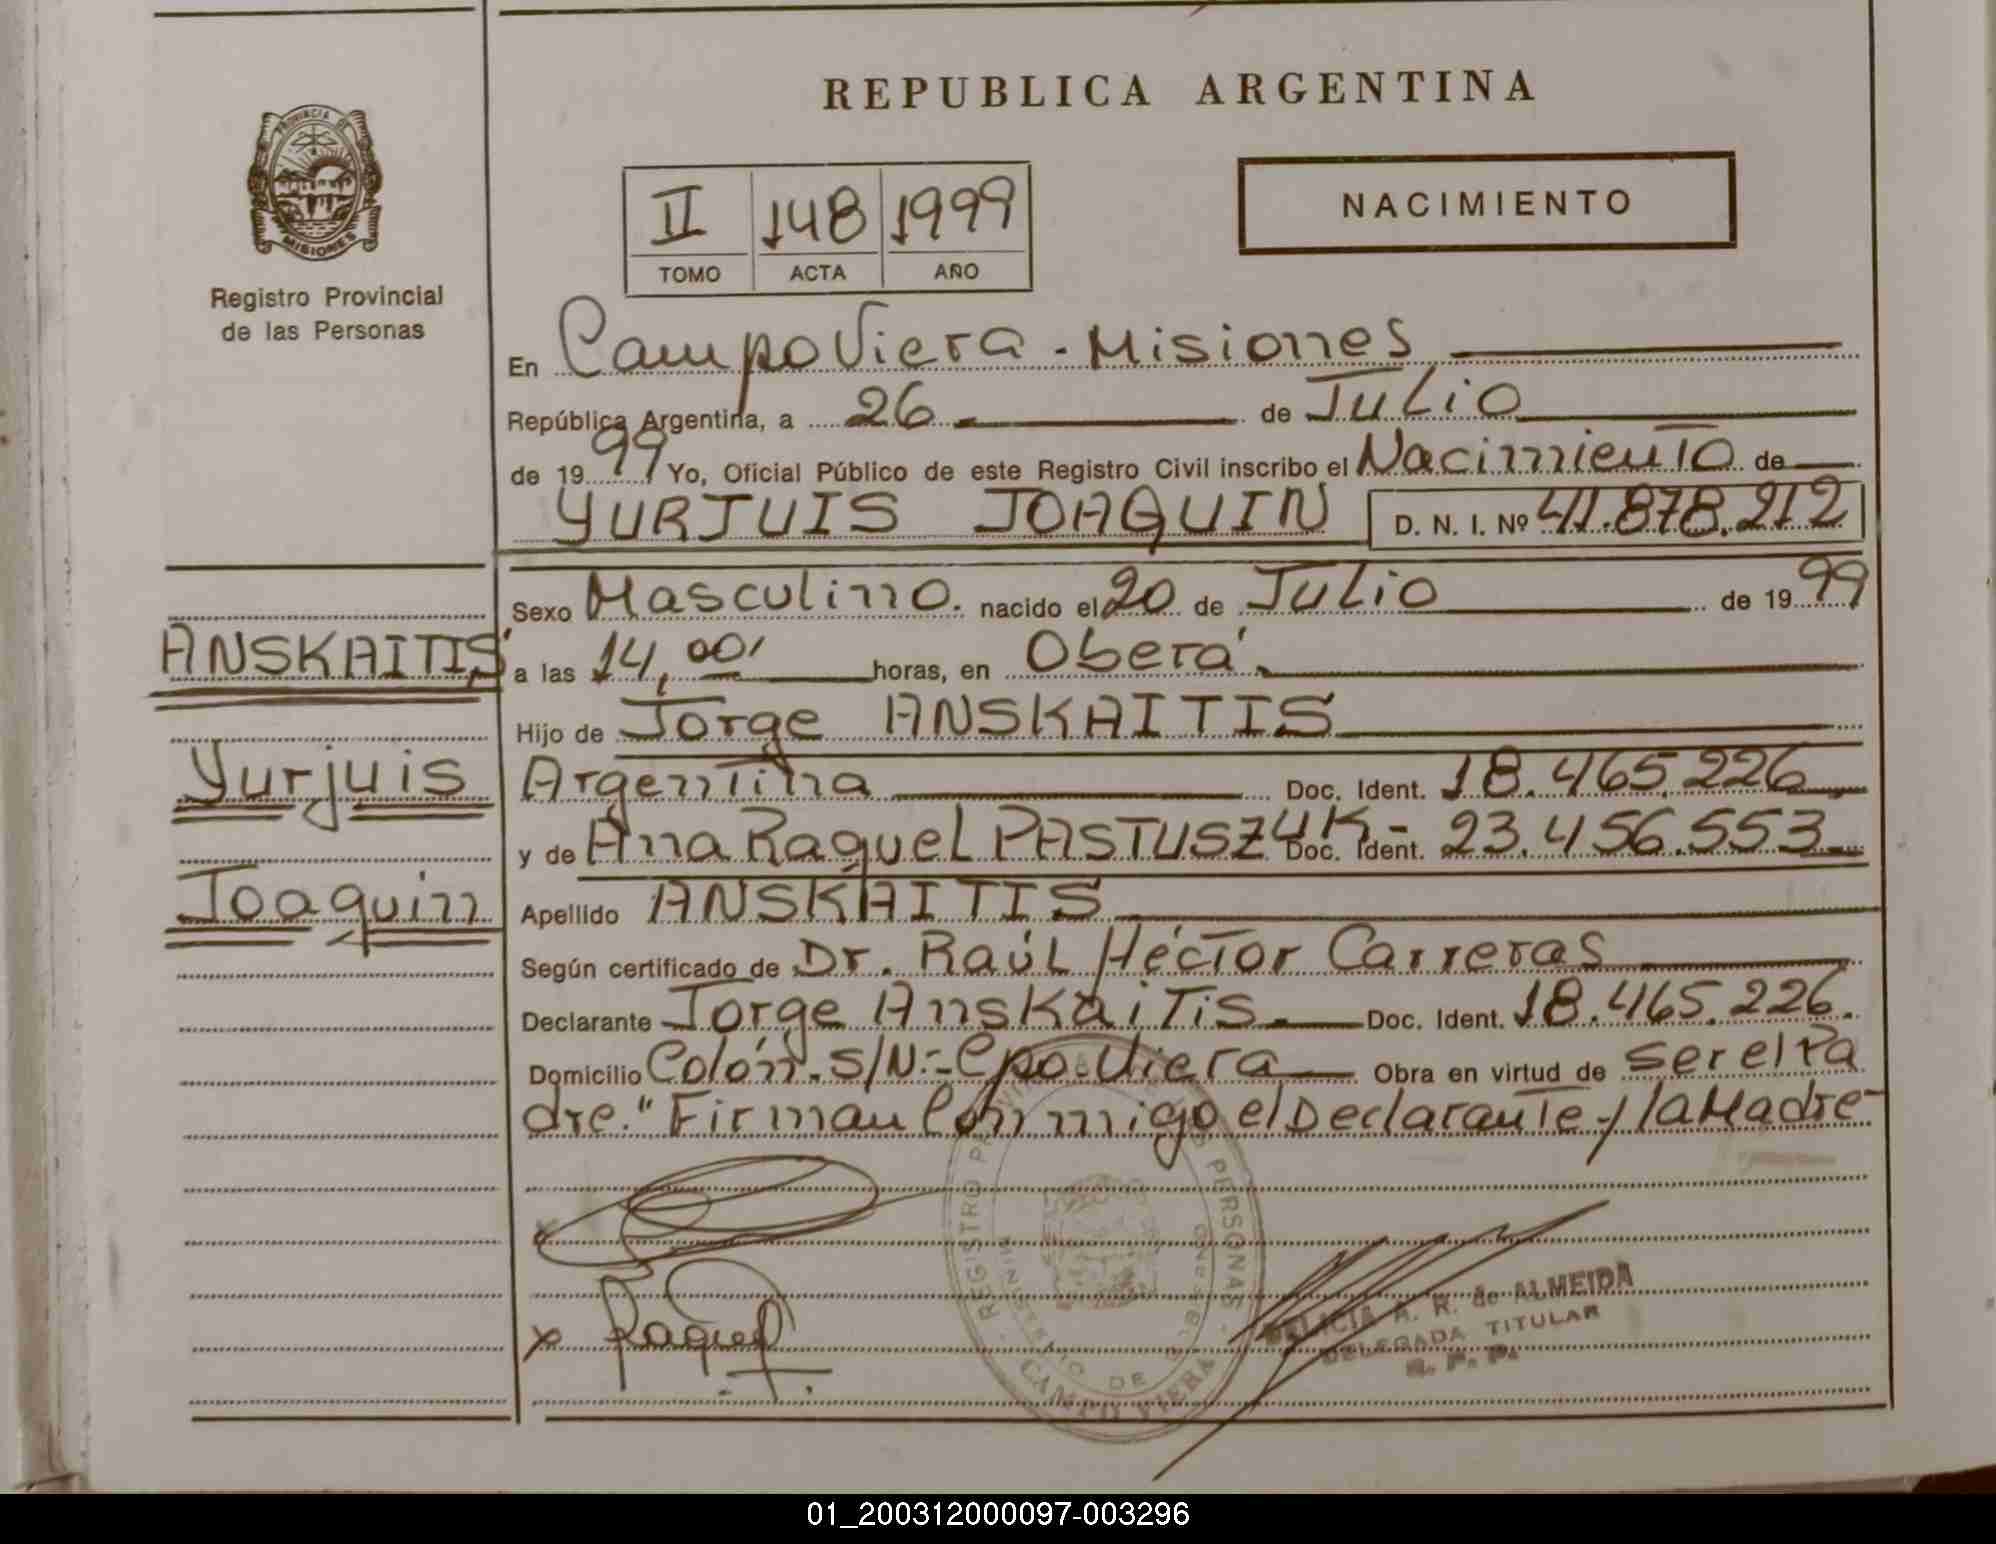 REPUBLICA ARGENTINA
PROVINCIA DE
MISIONES
Registro Provincial
de las Personas
II 148 1999
TOMO ACTA AÑO
NACIMIENTO
En Campo Viera - Misiones
República Argentina, a 26 de Julio
de 1999 Yo, Oficial Público de este Registro Civil inscribo el Nacimiento de
YURJUIS JOAQUIN D. N. I. Nº 41.878.212
Sexo Masculino. nacido el 20 de Julio de 1999
ANSKAITIS
a las 14,00 horas, en Oberá.
Hijo de Jorge ANSKAITIS
Yurjuis
Argentina Doc. Ident. 18.465.226
y de Ana Raquel PASTUSZUK - Doc. Ident. 23.456.553
Joaquin
Apellido ANSKAITIS
Según certificado de Dr. Raúl Héctor Carreras
Declarante Jorge Anskaitis. Doc. Ident. 18.465.226.
Domicilio Colón. S/N:- Cpo. Viera Obra en virtud de ser el Pa
dre." Firman Conmigo el Declarante y la Madre-
x
x Raquel P.
REGISTRO PROVINCIAL DE LAS PERSONAS
MINISTERIO DE GOBIERNO
CAMPO VIERA
FELICIA A. R. de ALMEIDA
DELEGADA TITULAR
R. P. P.
01_200312000097-003296